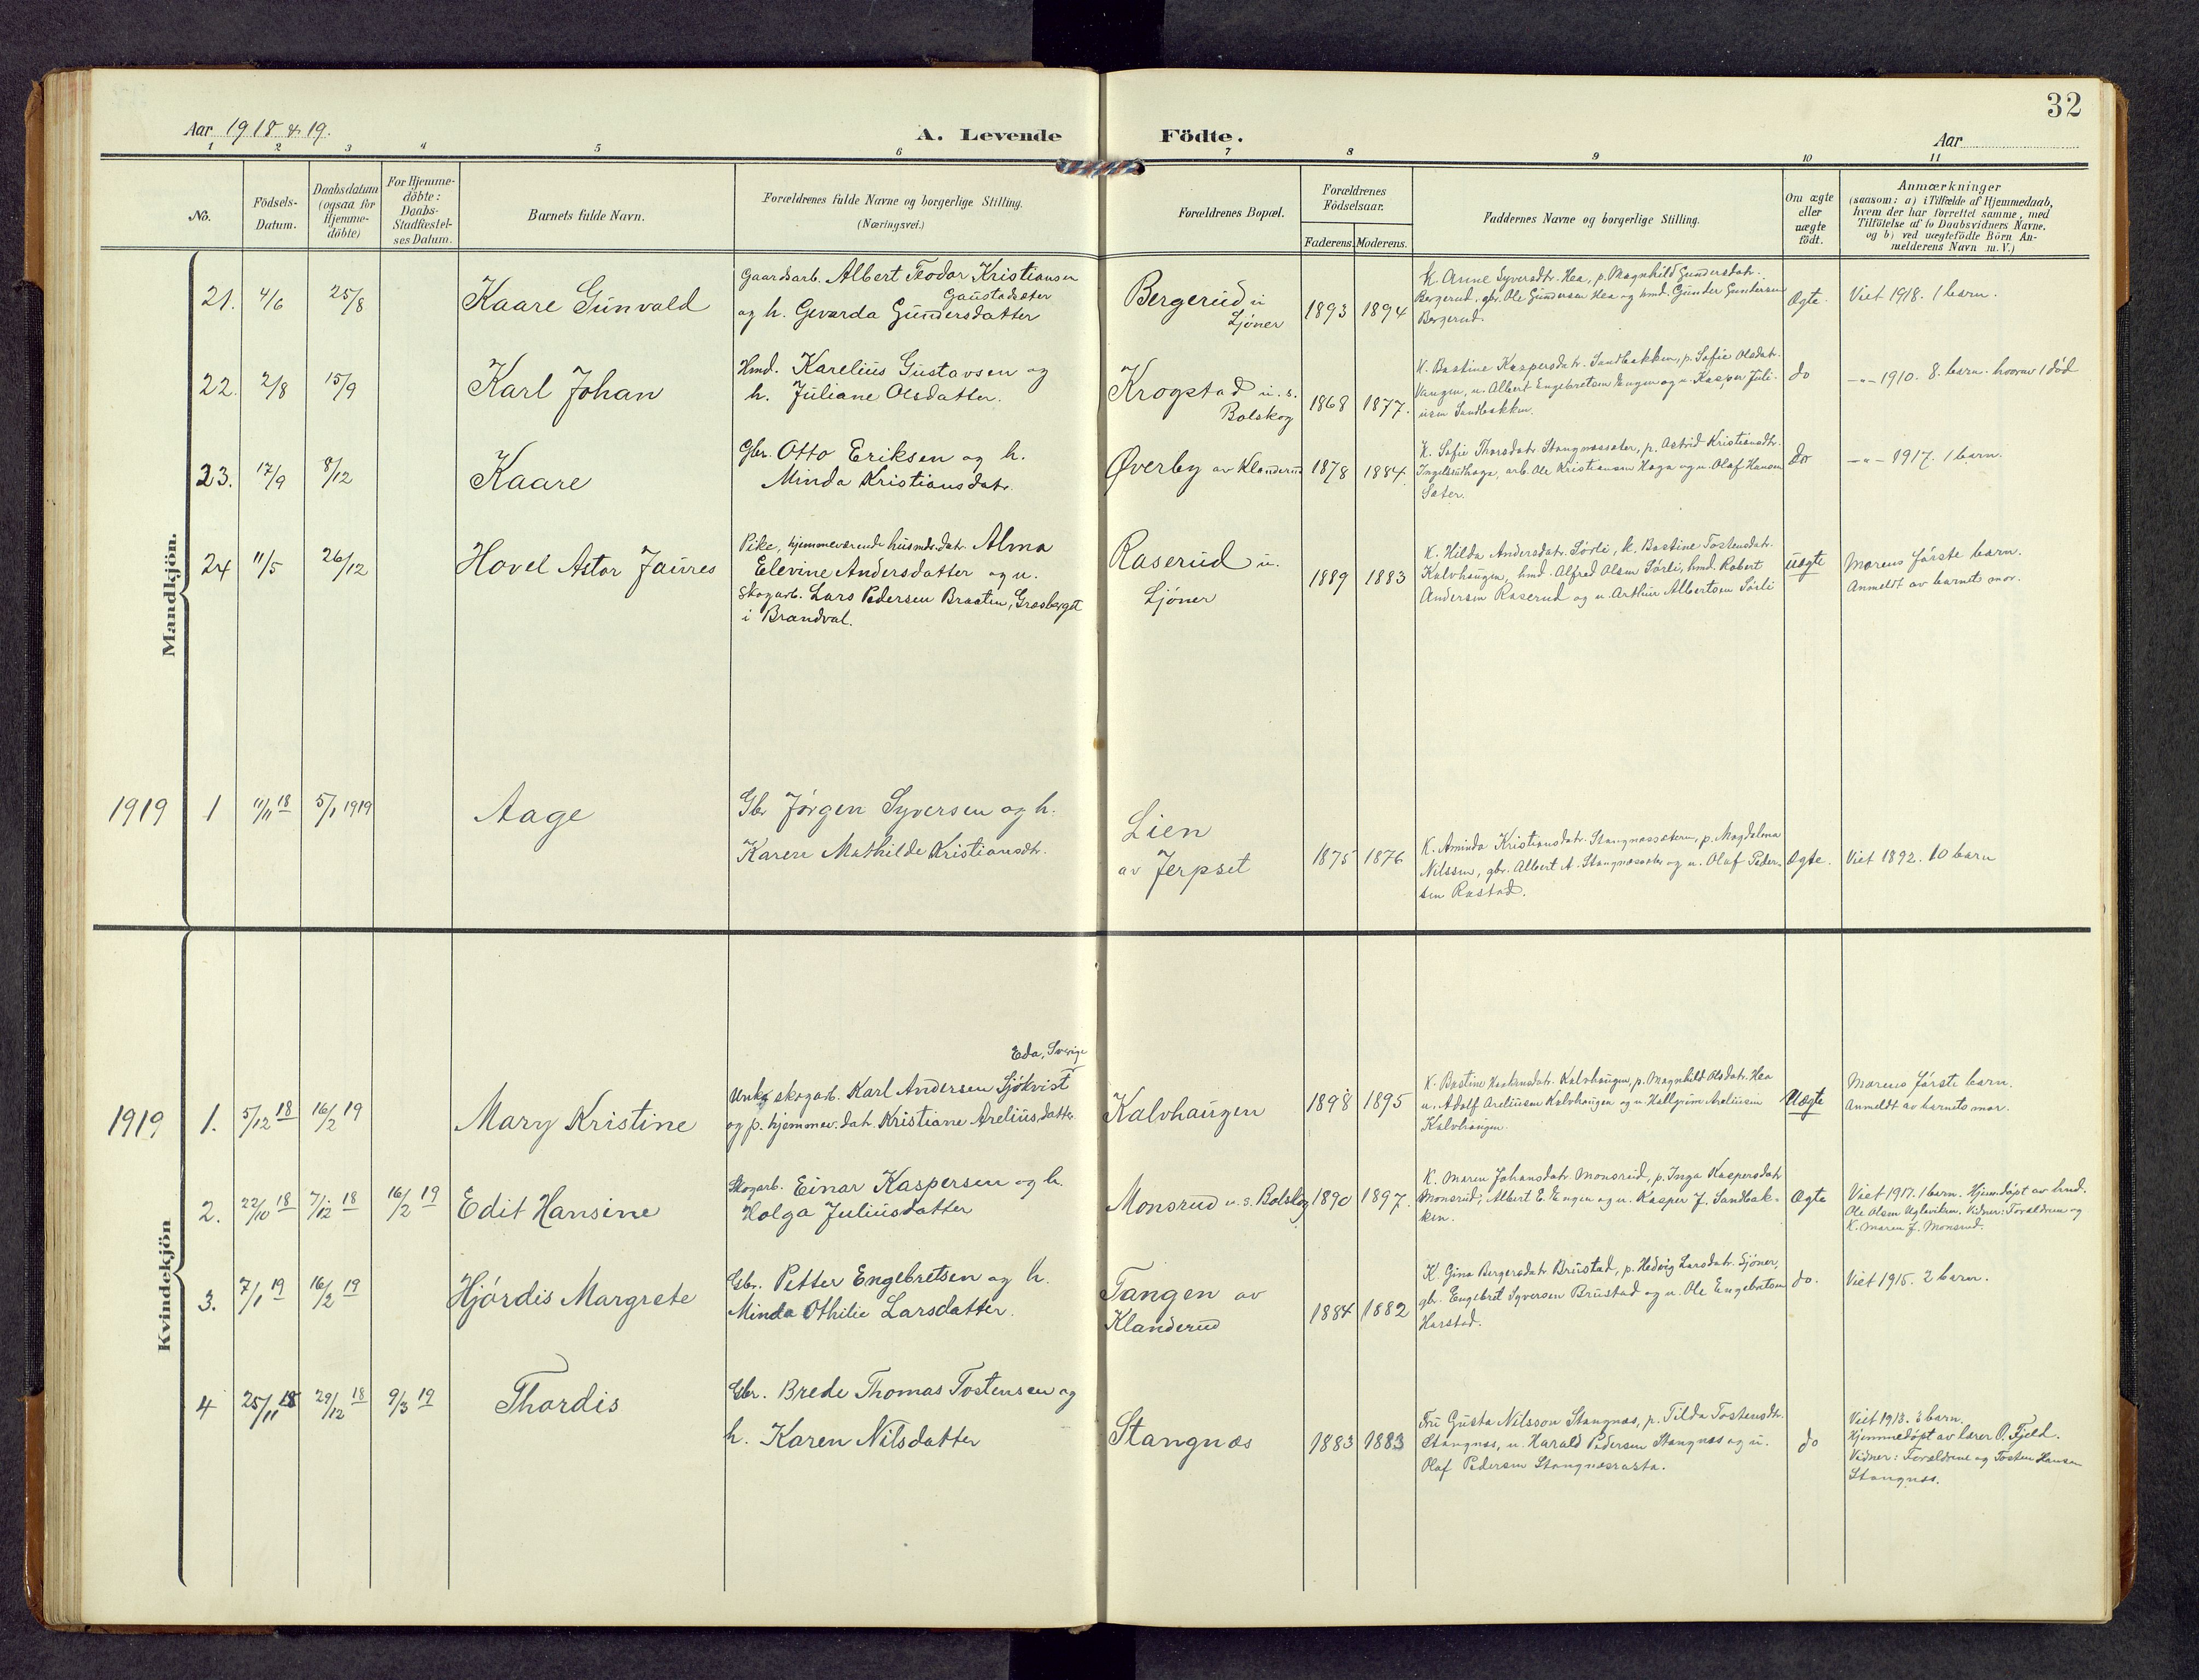 32
Aar 1918 & 19.
A. Levende Födte.
Aar
1 2 3 4 5 6 7 8 9 10 11
No.
Födsels-
Datum.
Daabsdatum
(ogsaa for
Hjemme-
döbte)
For Hjemme-
döbte:
Daabs-
Stadfæstel-
ses Datum.
Barnets fulde Navn.
Forældrenes fulde Navne og borgerlige Stilling.
(Næringsvei.)
Forældrenes Bopæl.
Forældrenes
Födselsaar.
Faderens. Moderens.
Faddernes Navne og borgerlige Stilling.
Om ægte
eller
uægte
födt.
Anmærkninger
(saasom: a) i Tilfælde af Hjemmedaab,
hvem der har forrettet samme, med
Tilföielse af to Daabsvidners Navne.
og b) ved uægtefödte Börn An-
melderens Navn m. V.)
Mandkjön.
21. 4/6 25/8
Kaare Gunvald
Gaardsarb. Albert Teodor Kristiansen
Gaustadsæter
og h. Gevarda Gundersdatter
Bergerud u
Sjöner
1893 1894
K. Anne Syversdtr. Hea, p. Magnhild Gundersdatr.
Bergerud, gbr. Ole Gundersen Hea og hmd. Gunder Gundersen
Bergerud.
Ægte.
Viet 1918. 1 barn.
22. 2/8 15/9
Karl Johan
Hmd. Karelius Gustavsen og
h. Juliane Olsdatter.
Krogstad u. s.
Bolskog
1868 1877.
K. Bastine Kaspersdatr. Sandbakken, p. Sofie Olsdatr.
Vangen, u. Albert Engebretsen Engen og u. Kasper Juli-
usen Sandbakken.
do
-"- 1910. 8 barn hvorav 1 död
23. 17/9 8/12
Kaare
Gbr. Otto Eriksen og h.
Minda Kristiansdatr.
Øverby av Klanderud
1878 1884.
K. Sofie Thorsdatr. Stangnæssæter, p. Astrid Kristiansdtr.
Ingelsrudhage, arb. Ole Kristiansen Haga og u. Olaf Hansen
Sæter.
do
-"- 1917. 1 barn.
24 11/5 26/12
Hovel Astor Jaures
Pike, hjemmeværende husmds.datr. Alma
Elevine Andersdatter og u.
Skogarb. Lars Pedersen Braaten, Græsberget
i Brandval.
Raserud u.
Sjöner
1889 1883
K. Hilda Andersdatr. Sörli, K. Bastine Tostensdatr.
Kalvhaugen, hmd. Alfred Olsen Sörli, hmd. Robert
Andersen Raserud og u. Arthur Albertsen Sörli
uægte
Morens förste barn.
Anmeldt av barnets mor.
1919 1 11/11 18 5/1 1919
Aage
Gbr Jörgen Syversen og h.
Karen Mathilde Kristiansdtr.
Lien
av Jerpset
1875 1876
K. Aminda Kristiansdatr. Stangnæssæteren, p. Magdalena
Nilssen, gbr. Albert A. Stangnæssæter og u. Olaf Peder-
sen Rastad.
Ægte.
Viet 1892. 10 barn
Kvindekjön
1919 1. 5/12 18 16/2 19
Mary Kristine
Eda, Sverige
Unk. skogarb. Karl Andersen Sjökvist
og p. hjemmev. datr. Kristiane Arelius.datter
Kalvhaugen
1898 1895
K. Bastine Kalvhaugen, p. Magnhild Olsdatr. Hea
u. Adolf Areliusen Kalvhaugen og u. Hallgrim Areliusen
Kalvhaugen.
Uægte
Morens förste barn.
Anmeldt av barnets mor.
2. 22/10 18 7/12 18 16/2 19
Edit Hansine
Skogarb. Einar Kaspersen og h.
Holga Juliusdatter
Monsrud u. s. Bolskog
1890 1897.
K. Maren Johansdatr. Monsrud, p. Inga Kaspersdatr
Monsrud, Albert E. Engen og u. Kasper J. Sandbak-
ken.
Ægte
Viet 1917. 1 barn. Hjemdöpt av hmd.
Ole Olsen Ugleviken. Vidner: Forældrene og
K. Maren J. Monsrud.
3. 7/1 19 16/2 19
Hjördis Margrete
Gbr. Petter Engebretsen og h.
Minda Othilie Larsdatter.
Tangen av
Klanderud
1884 1882
K. Gina Bergersdatr. Brustad, p. Hedvig Larsdatr. Sjöner,
gbr. Engebret Syversen Brustad og u. Ole Engebretsen
Harstad.
do.
Viet 1915. 2 barn.
4 25/11 18 29/12 18 9/3 19
Thordis
Gbr. Brede Thomas Tostensen og
h. Karen Nilsdatter
Stangnæs
1883 1883
Fru Gusta Nilsson Stangnæs, p. Tilda Tostensdtr.
Stangnæs, u. Harald Pedersen Stangnæs og u.
Olaf Pedersen Stangnæsrasta.
do
Viet 1913. 3 barn.
Hjemmedöpt av lærer O. Fjeld.
Vidner: Forældrene og Tosten Hansen
Stangnæs.